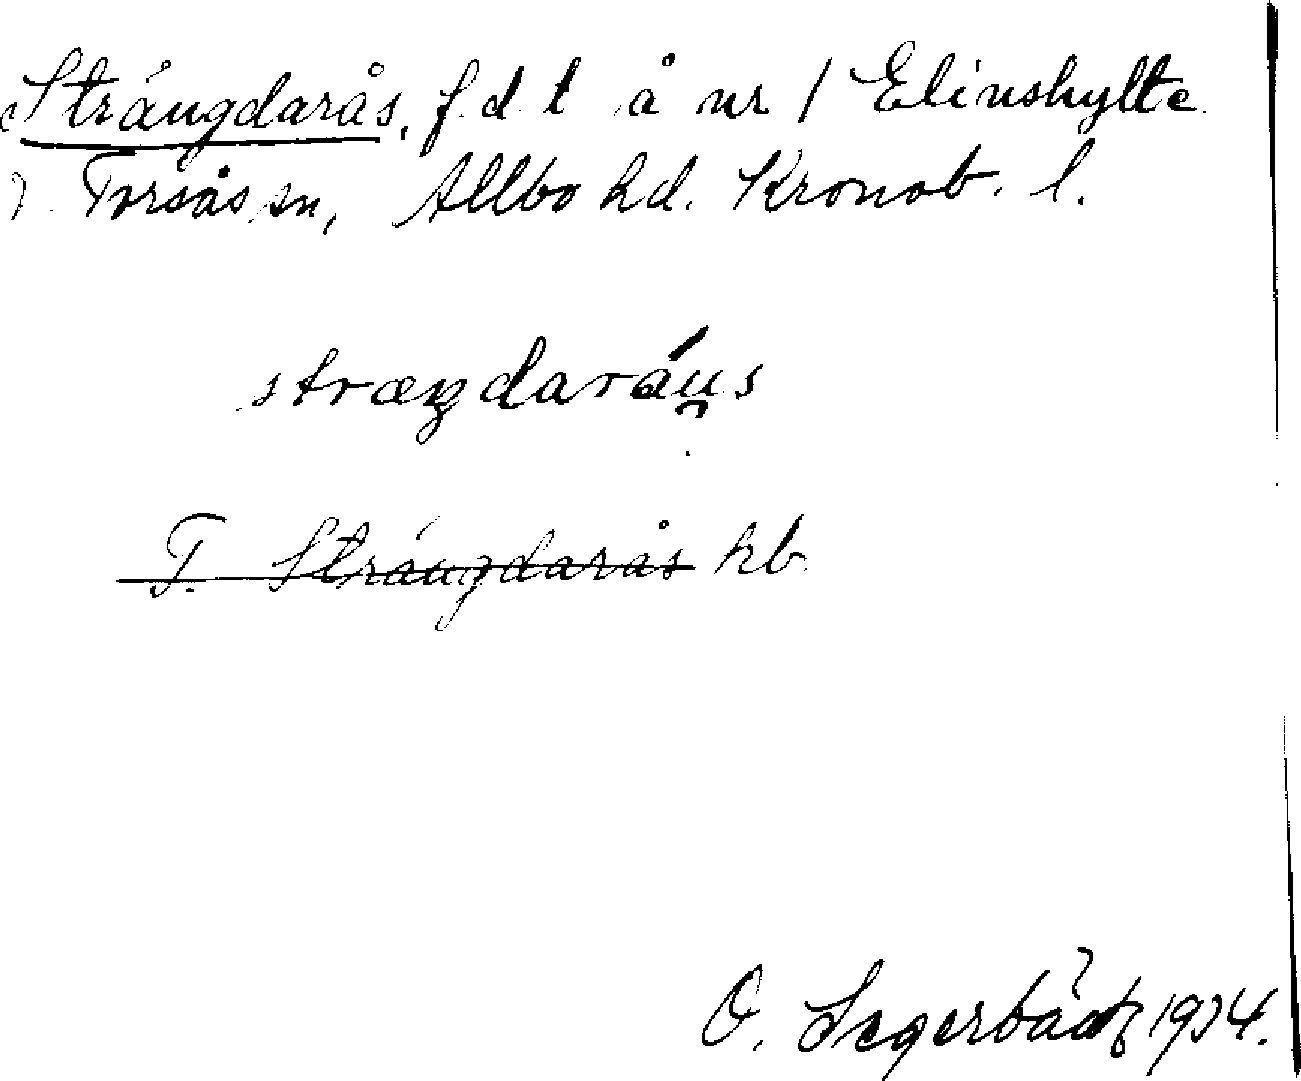 Strängdarås, f.d. t å nr 1 Elinshylte
Torsås sn, Allbo hd. Kronob. l.
stræŋdaráu̯s
T. Strängdarås hb.
O. Segerbäck 1934.